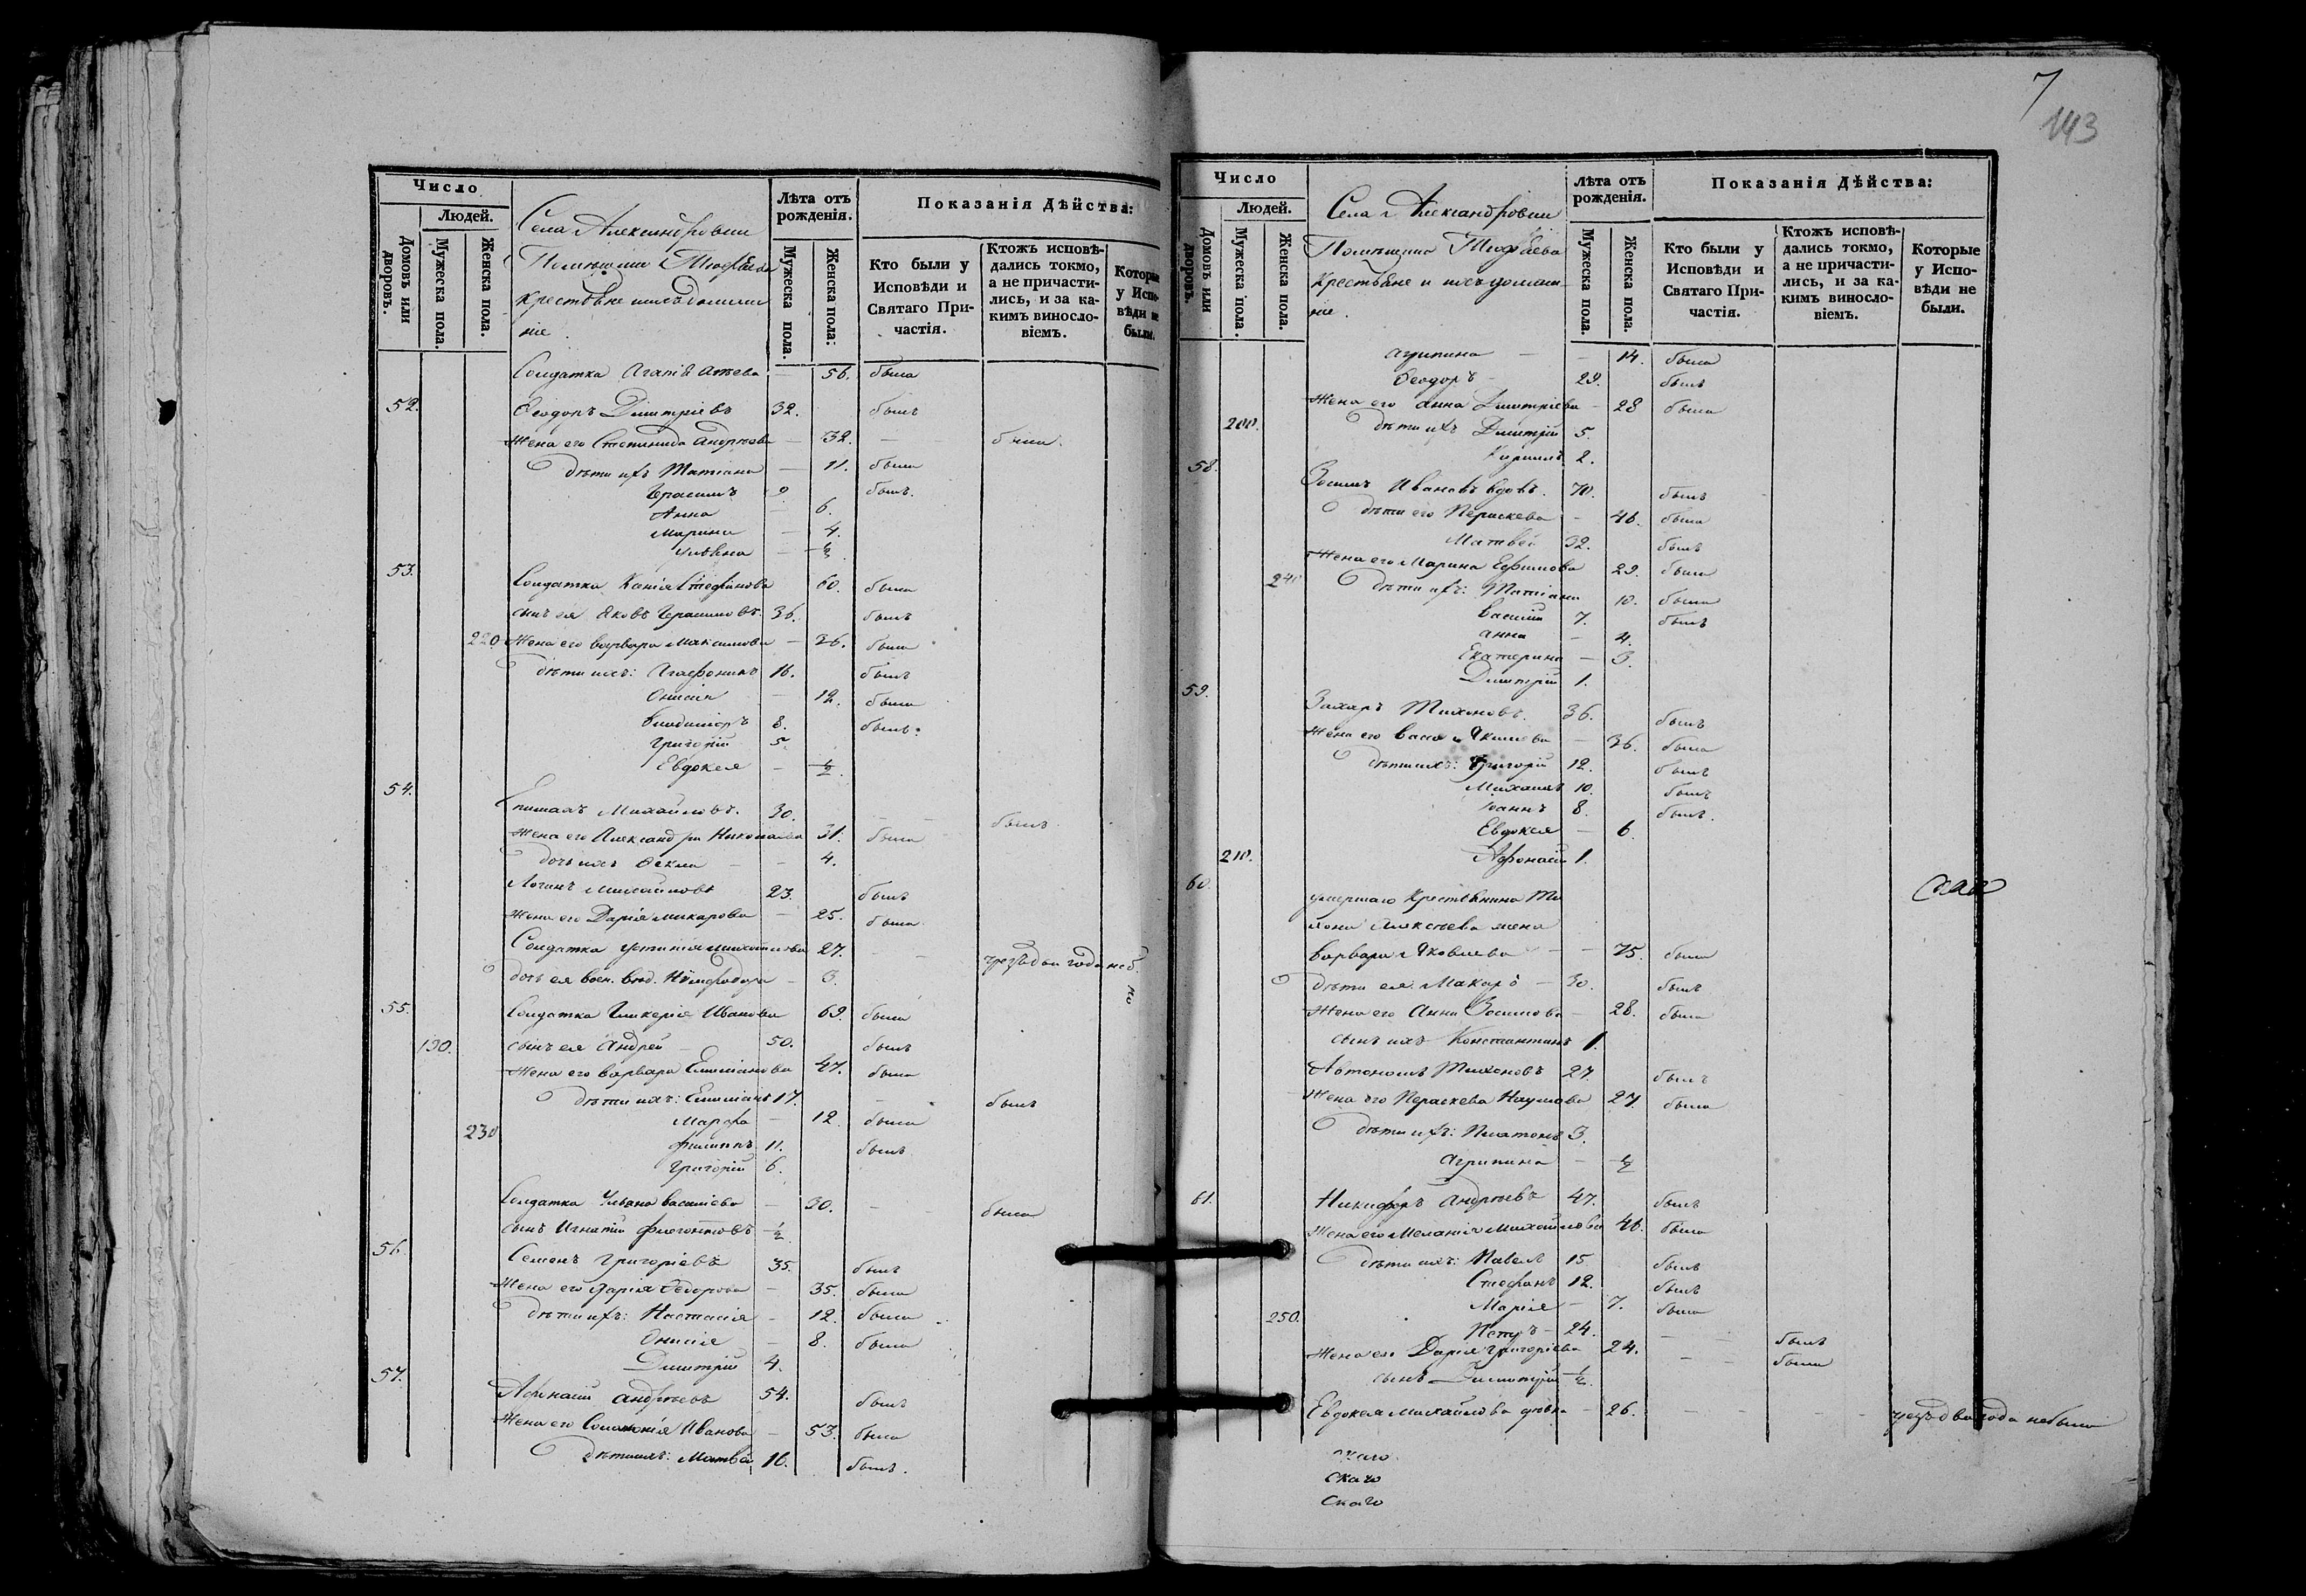 Число
Людей.
Домовъ или дворовъ.
Мужеска пола.
Женска пола.
Села Александровки
Помѣщика
крестьяне
ніе.
Лѣта отъ рожденія.
Мужеска пола.
Женска пола:
Показанія Дѣйства:
Кто были у Исповѣди и Святаго Причастія.
Ктожъ исповѣдались токмо, а не причастились, и за какимъ винословіемъ.
Которые у Исповѣди не были.
Солдатка 56. была
52. Ѳеодоръ Димитріевъ 32. былъ
Жена его Степанида Андреева — 32. — была.
дѣти ихъ Татіана — 11. была
Герасимъ 9. былъ.
Анна — 6.
Марина — 4.
Ульяна — ½
53. Солдатка Стефанова 60. была
сынъ ея Яковъ Герасимовъ. 36. былъ
220 Жена его Варвара Максимова — 36. была
дѣти ихъ: Агафонъ 16. былъ
Онисія — 12. была
Владиміръ 8. былъ.
Григорій 5.
Евдокея — ½.
54. Михайловъ. 30. — — былъ
Жена его Александра Николаева 31. была
дочь ихъ Ѳекла — — 4.
Логинъ Михайловъ 23. былъ
Жена его Дарія Макарова — 25. была
Солдатка Устинія Михайлова 27. — —
дочь ея 3.
55. Солдатка Гликерія Иванова 69. была
190. сынъ ея Андрей — 50. былъ
Жена его Варвара Емиліанова 47. была
дѣти ихъ: Емиліанъ 17. — былъ
Марфа — 12. была
230 Филиппъ 11. былъ
Григорій 6.
Солдатка Ульяна Васильева — 30. — была
сынъ Игнатій ½
56. Семенъ Григоріевъ 35. былъ
Жена его Дарія Ѳедорова — 35. была
дѣти ихъ: Настасія — 12. была
Онисія — 8. была
Димитрій 4.
57. Аѳанасій Андреевъ 54. былъ
Жена его Соломонія Иванова — 53. была
дѣти ихъ: Матвѣй 16. былъ.
7
143
Число
Людей.
Домовъ или дворовъ.
Мужеска пола.
Женска пола.
Села Александровки
Помѣщика
крестьяне и
ніе.
Лѣта отъ рожденія.
Мужеска пола.
Женска пола.
Показанія Дѣйства:
Кто были у Исповѣди и Святаго Причастія.
Ктожъ исповѣдались токмо, а не причастились, и за какимъ винословіемъ.
Которые у Исповѣди не были.
Агрипина — — 14. была
Ѳеодоръ — 29. былъ
Жена его Анна Димитріева — 28 была
200. дѣти ихъ Димитрій 5.
Кирилъ 2.
58. Зосимъ Ивановъ вдовъ. 70. былъ
дѣти его Параскева — 46. была
Матвей 32. былъ
Жена его Марина Ефимова 29. была
240 дѣти ихъ: Татіана 10. была
Василій 7. былъ
Анна — 4.
Екатерина — 3.
Димитрій 1.
59. Захаръ Тихоновъ. 36. былъ
Жена его Васса Якимова — 36. была
дѣти ихъ: Григорій 12. былъ
Михаилъ 10. былъ
Іоаннъ 8. былъ.
Евдокея — 6.
210. Афонасій 1.
60. умершаго Крестьянина Ти
хона Алексѣева жена
Варвара Яковлева — — 75. была
дѣти ея: Макаръ — 30. былъ
Жена его Анна Зосимова — 28. была
сынъ ихъ Константинъ 1.
Автономъ Тихоновъ 27. былъ
Жена его Параскева Наумова 27. была
дѣти ихъ: Платонъ 3.
Агрипина — ½
61. Никифоръ Андреевъ 47. былъ
Жена его Меланія Михайлова 46. была
дѣти ихъ: Павелъ 15 былъ
Стефанъ 12. былъ
250. Марія — 7. была
Петръ — 24. — — былъ
Жена его Дарія Григоріева 24. — — была
сынъ Димитрій ½.
Евдокея Михайлова — 26. — — — — чрезъ два года небыла
скаго
скаго